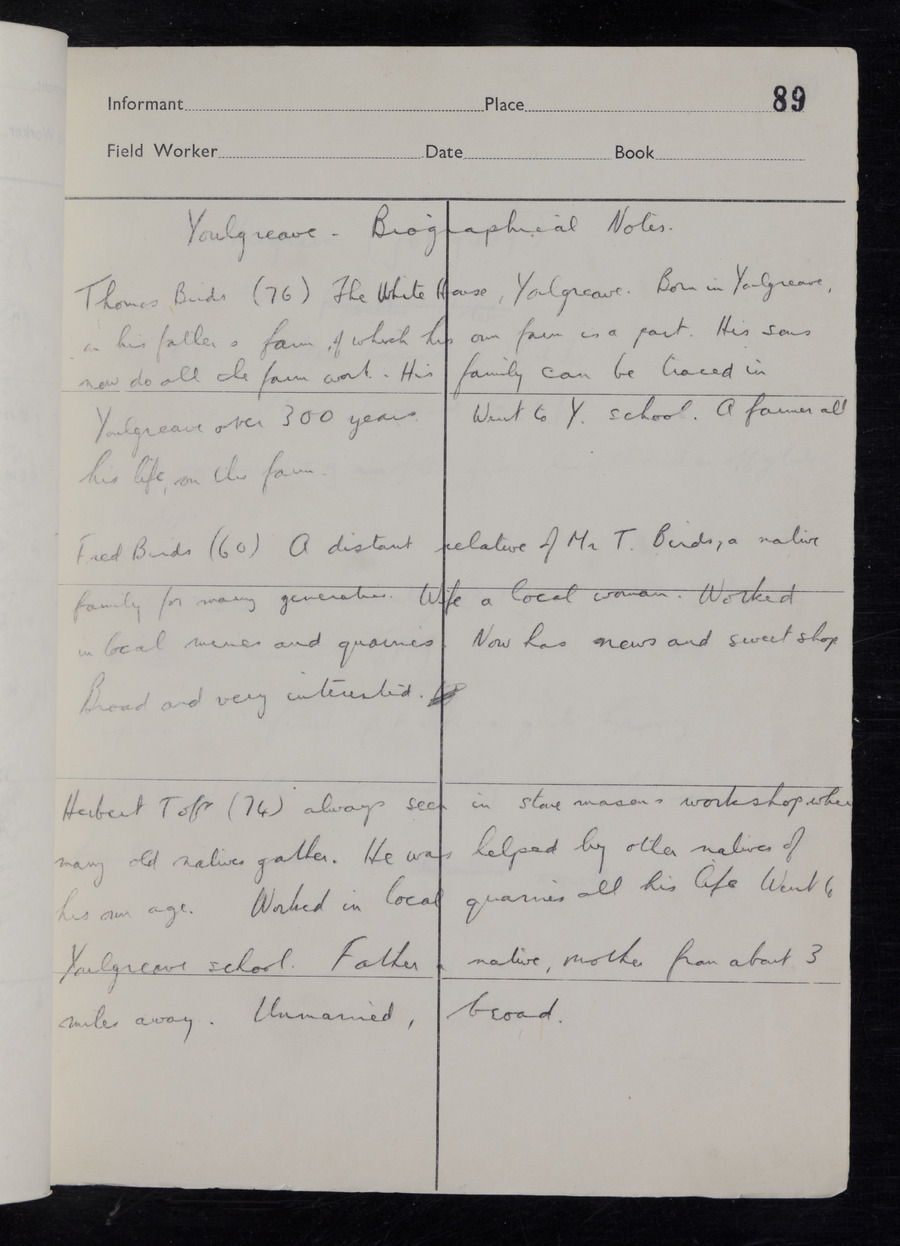 Informant Place 89
Field Worker Date Book
Youlgreave - Biographical Notes.
Thomas Birds (76) The White House, Youlgreave. Born in Youlgreave,
in his father's farm, of which his own farm is a part. His sons
now do all the farm work. His family can be traced in
Youlgreave over 300 years. Went to Y. school. A farmer all
his life, on the farm.
Fred Birds (60) A distant relative of Mr T. Birds, a native
family for many generations. Wife a local woman. Worked
in local mines and quarries. Now has news and sweet shop
Broad and very interested.
Herbert Toft (74) always seen in stone masons workshop where
many old natives gather. He was helped by other natives of
his own age. Worked in local quarries all his life Went to
Youlgreave school. Father a native, mother from about 3
miles away. Unmarried, broad.